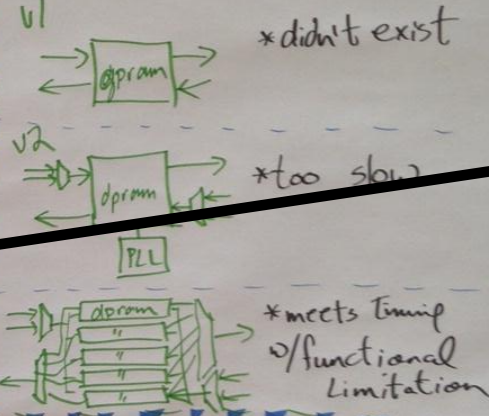 v1
*didn't exist
qpram
v2
dpram
*too slow
PLL
dpram
"
"
"
"
*meets Timing
w/functional
Limitation